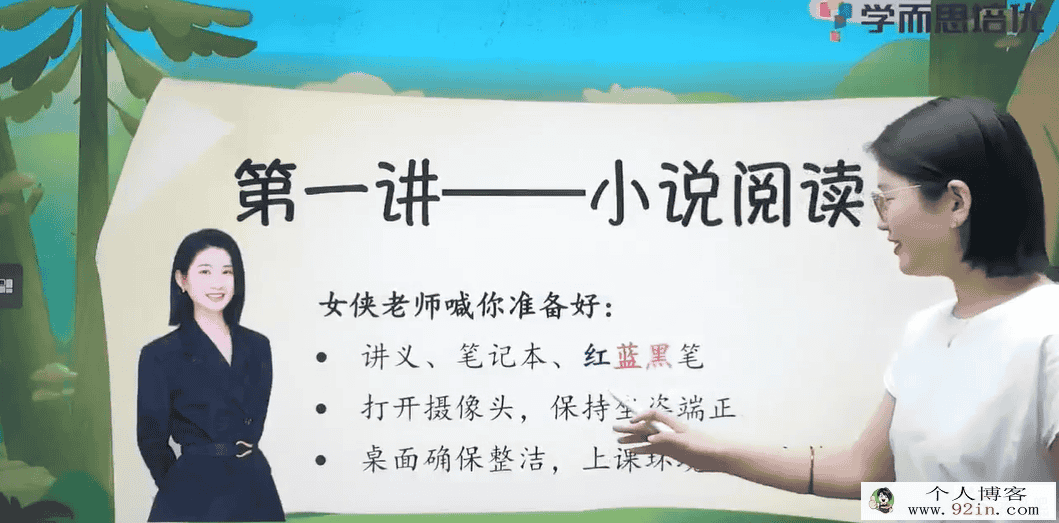 学而思培优
第一讲——小说阅读
女侠老师喊你准备好：
• 讲义、笔记本、红蓝黑笔
• 打开摄像头，保持坐姿端正
• 桌面确保整洁，上课环境
个人博客
www.92in.com